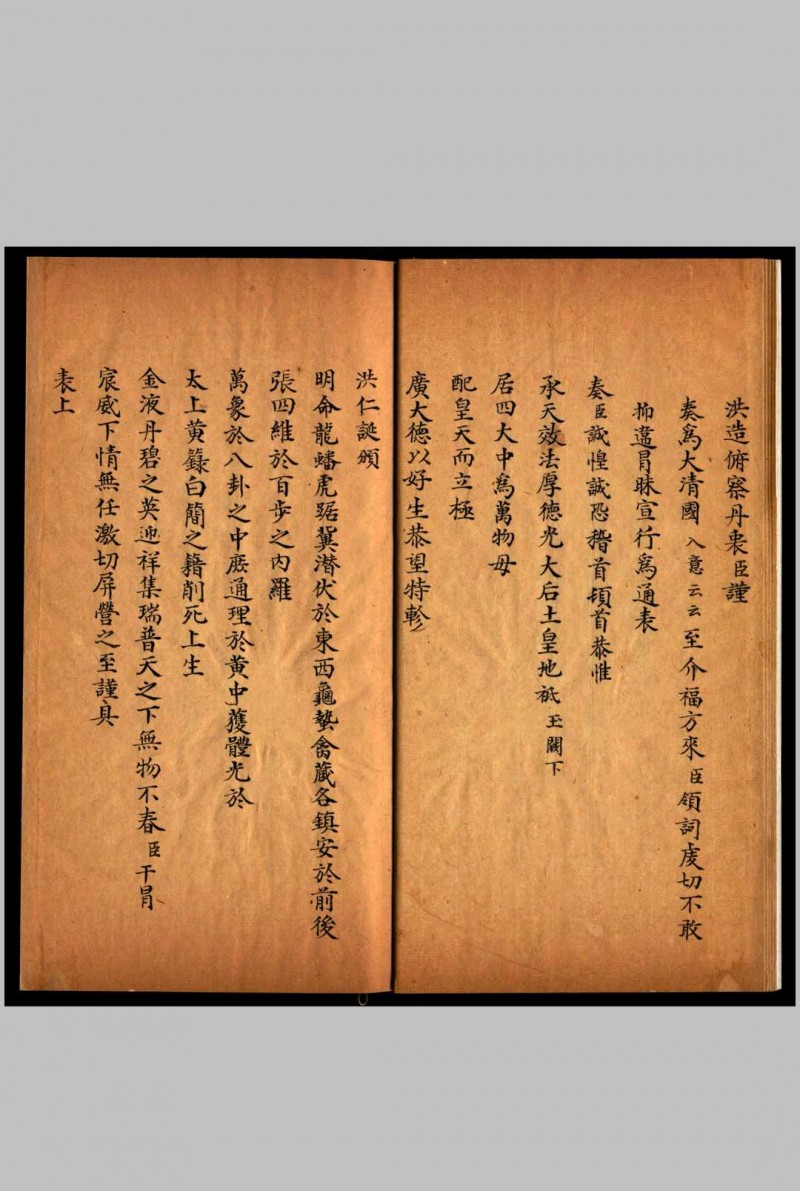 洪造俯察丹衷臣謹
奏爲大清國入意云云至介福方來臣領詞虔切不敢
抑違冒昧宣行爲通表
奏臣誠惶誠恐稽首頓首恭惟
承天效法厚德光大后土皇地祇玉闕下
居四大中爲萬物母
配皇天而立極
廣大德以好生恭望特軫
洪仁誕頒
明命龍蟠虎踞冀潜伏於東西龜蟄禽藏各鎮安於前後
張四維於百步之内羅
萬象於八卦之中庶通理於黄中獲體光於
太上黄籙白簡之籍削死上生
金液丹碧之英迎祥集瑞普天之下無物不春臣干冒
宸威下情無任激切屏營之至謹具
表上